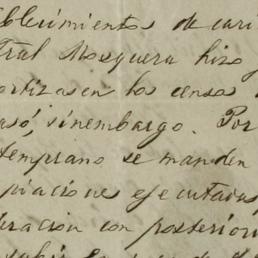 ablecimientos de cari
tral Mosquera hizo
ortizasen los censos
asó, sinembargo. Por
temprano se manden
piaciones ejecutadas
eracion con posteriori